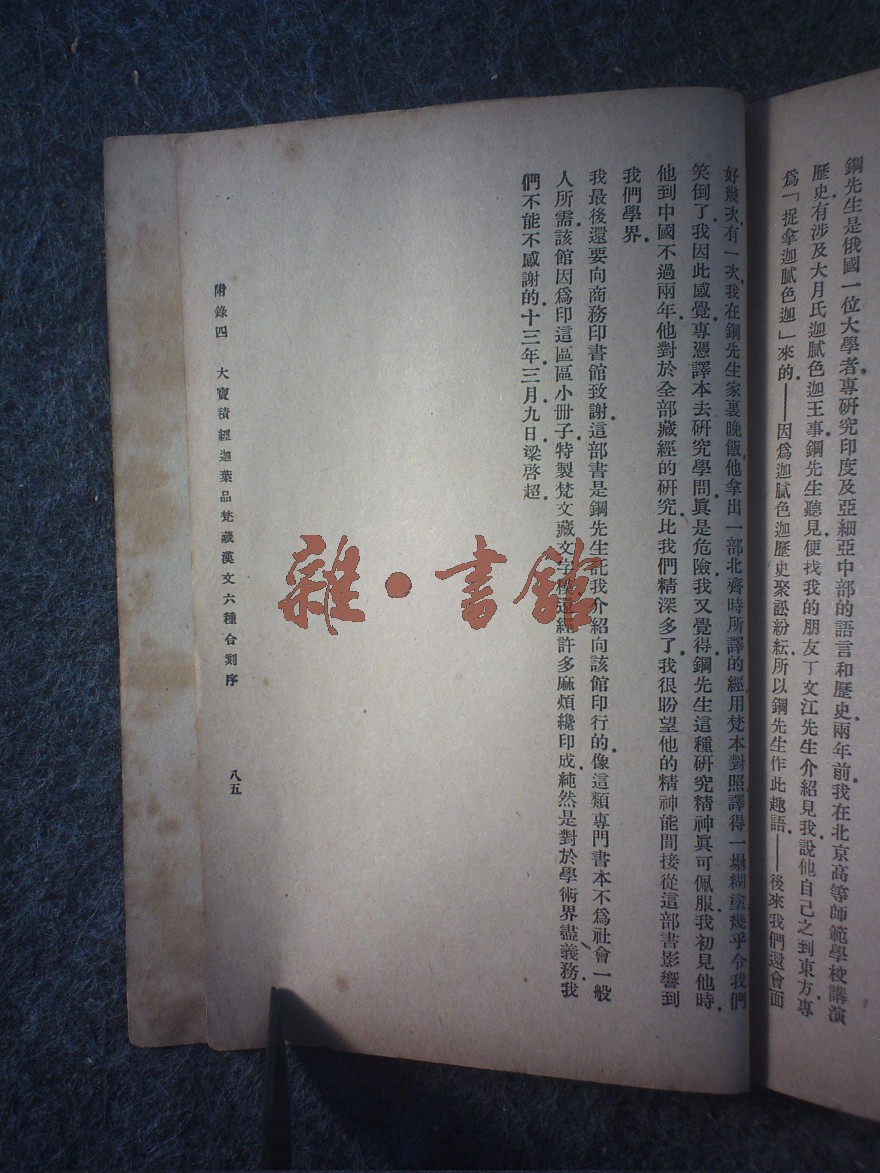 鋼先生是俄國一位大學者，專研究印度及亞細亞中部的語言和歷史。兩年前，我在北京高等師範學校講演
歷史，有涉及大月氏迦膩色迦王事，鋼先生聽見，便找我的朋友丁文江先生介紹見我，說他自己之到東方，專
爲「捉拿迦膩色迦」來的——因爲迦膩色迦歷史聚訟紛紜，所以鋼先生作此趣語——後來我們還會面
好幾次，有一次，我在鋼先生家裏晚飯，他拿出一部北齊時所譯的經用梵本對照，譯得一塌糊塗，幾乎令我們
笑倒了。我因此感覺專憑譯本去研究學問，眞是危險。我又覺得，鋼先生這種研究精神眞可佩服。我初見他時，
他到中國不過兩年，他對於全部藏經的研究，比我們精深多了。我很盼望他的精神能間接從這部書影響到
我們學界。
我最後還要向商務印書館致謝。這部書是鋼先生託我介紹向該館印行的。像這類專門書，本不爲社會一般
人所需，該館因爲印這區區小冊子，特製梵文藏文字還許多麻煩纔印成，純然是對於學術界盡義務，我
們不能不感謝的。十三年三月九日，梁啓超。
附錄四　大寶積經迦葉品梵藏漢文六種合刻序
八五
雜·書館